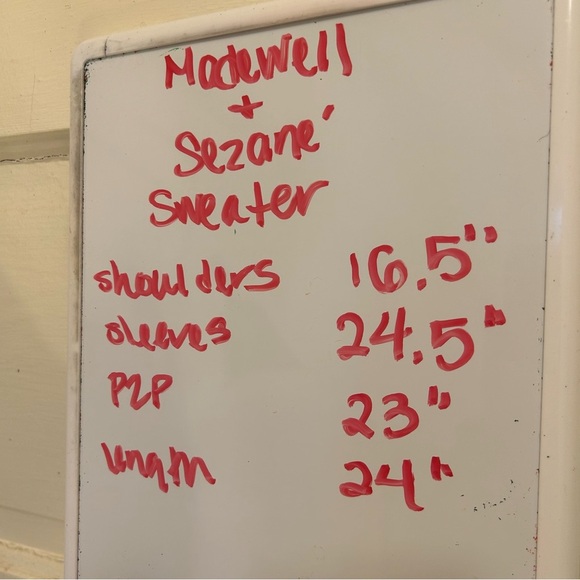 Madewell
+
Sezane´
Sweater
shoulders 16.5"
sleeves 24.5"
P2P 23"
length 24"